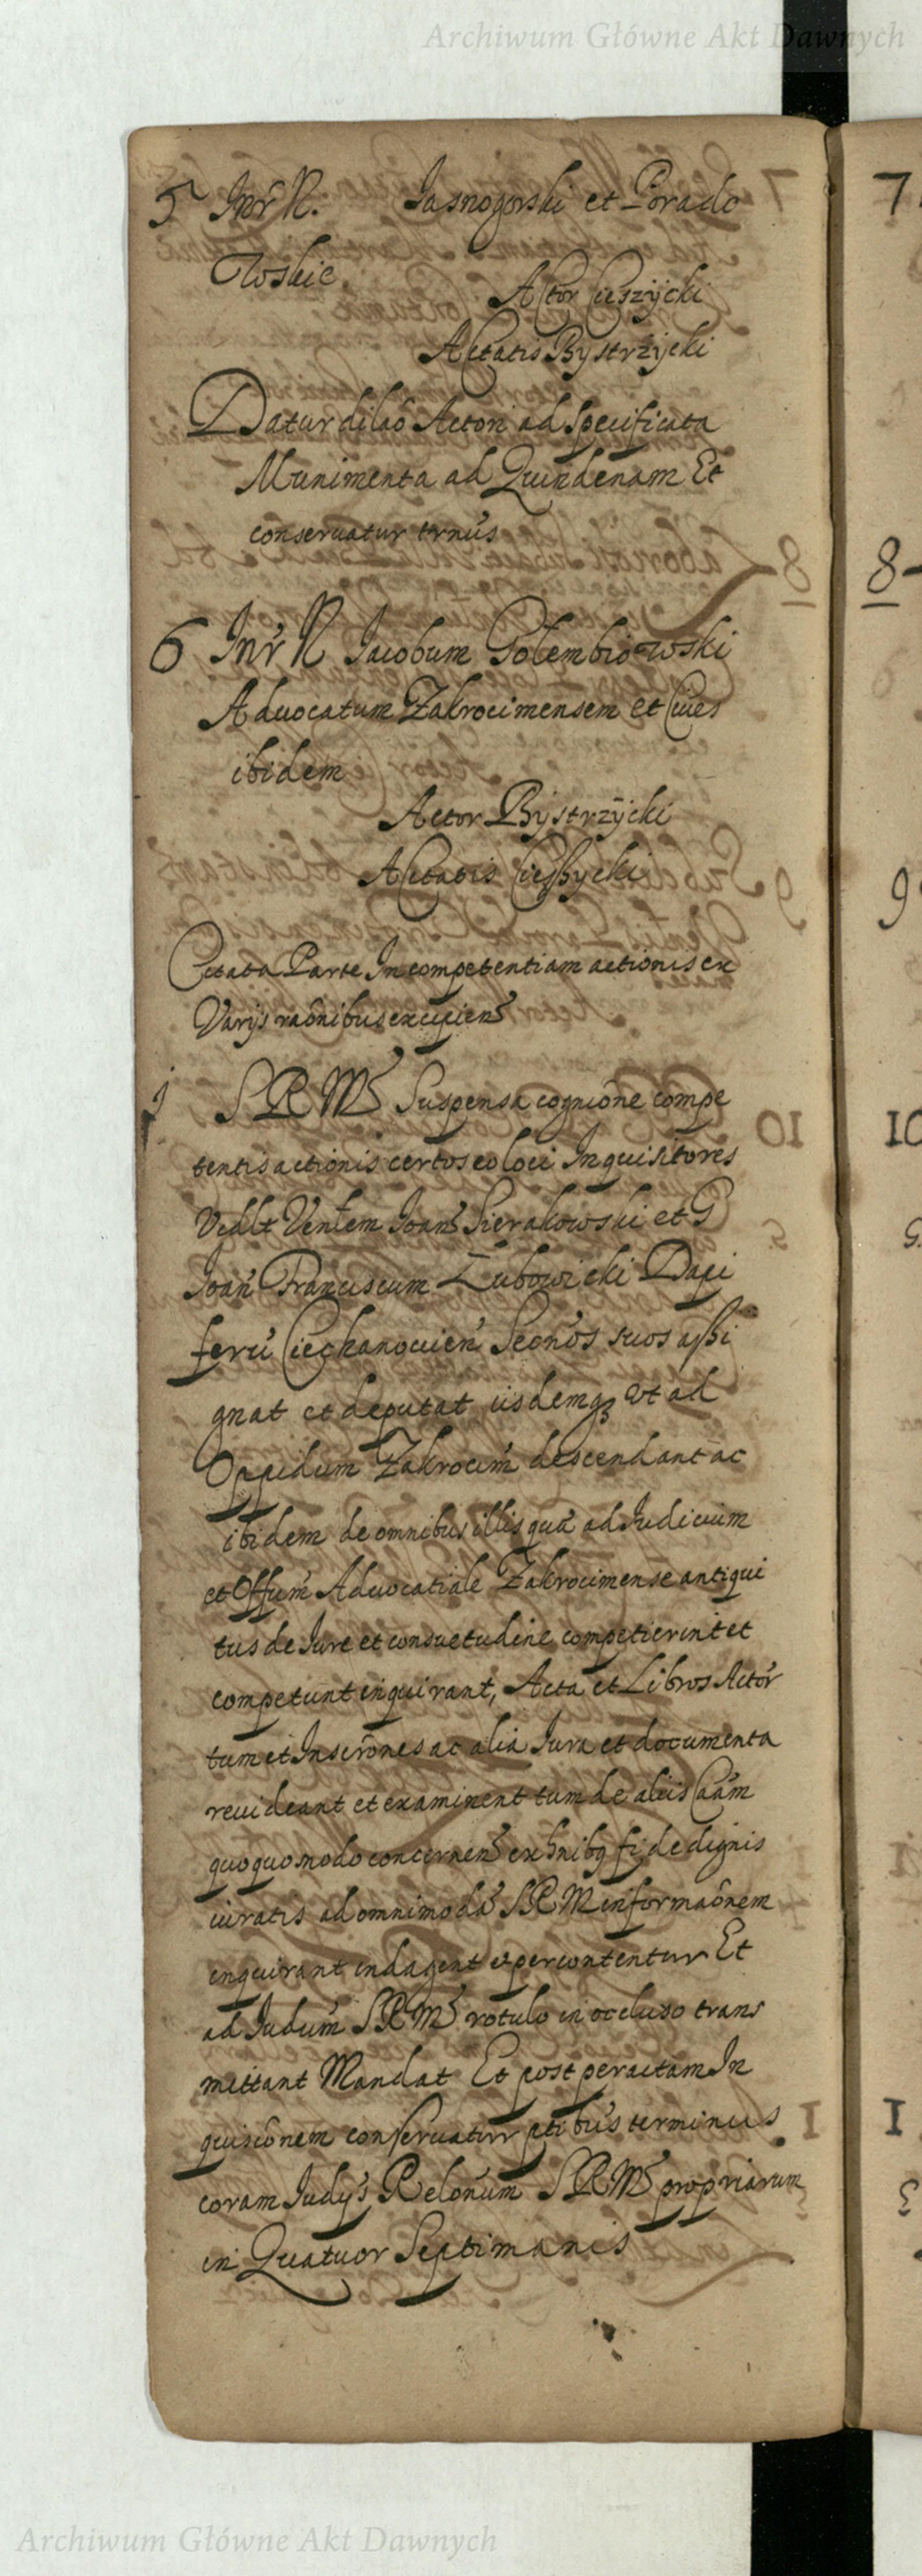 Archiwum Główne Akt Dawnych
5 Inr N. Jasnogorski et Porado
Wskie
Actor Cieszycki
Actatis Bystrzycki
Datur dilaō Actori ad specificata
Munimenta ad Quindenam Et
conservatur trnūs
6 Inr N Jacobum Golembiowski
Advocatum Zakrocimensem et Cives
ibidem
Actor Bystrzycki
Actatis Cieszycki
Citata Parte Incompetentiam actionis ex
Varijs raōnibus excipien
SRM Suspensa cognione compe
tentis actionis certos eo loci Inquisitores
Joan Sierakowski et G
Joan Franciscum Lubowicki Dapi
ferū Ciechanovien Secrios suos assi
gnat et deputat iisdemq3 Vt ad
Oppidum Zakrocim descendant ac
ibidem de omnibus illis quā ad Judicium
et Offum Advocatiale Zakrocimense antiqui
tus de Jure et consuetudine competierint et
competunt inquirant, Acta et Libros Actor
tum et Inscrōnes ac alia Jura et documenta
revideant et examinent tum de aliis Caām
quoquomodo concernen ex hnibq fide dignis
iuratis ad omnimodā SRM informaōnem
inquirant indagent et percontentur Et
ad Judūm SRM rotulo in occluso trans
mittant Mandat Et post peractam In
quisiōnem conservatur ptibus terminus
coram Judys Relonūm SRM propriarum
in Quatuor Septimanis
7
8
9
10
Archiwum Główne Akt Dawnych